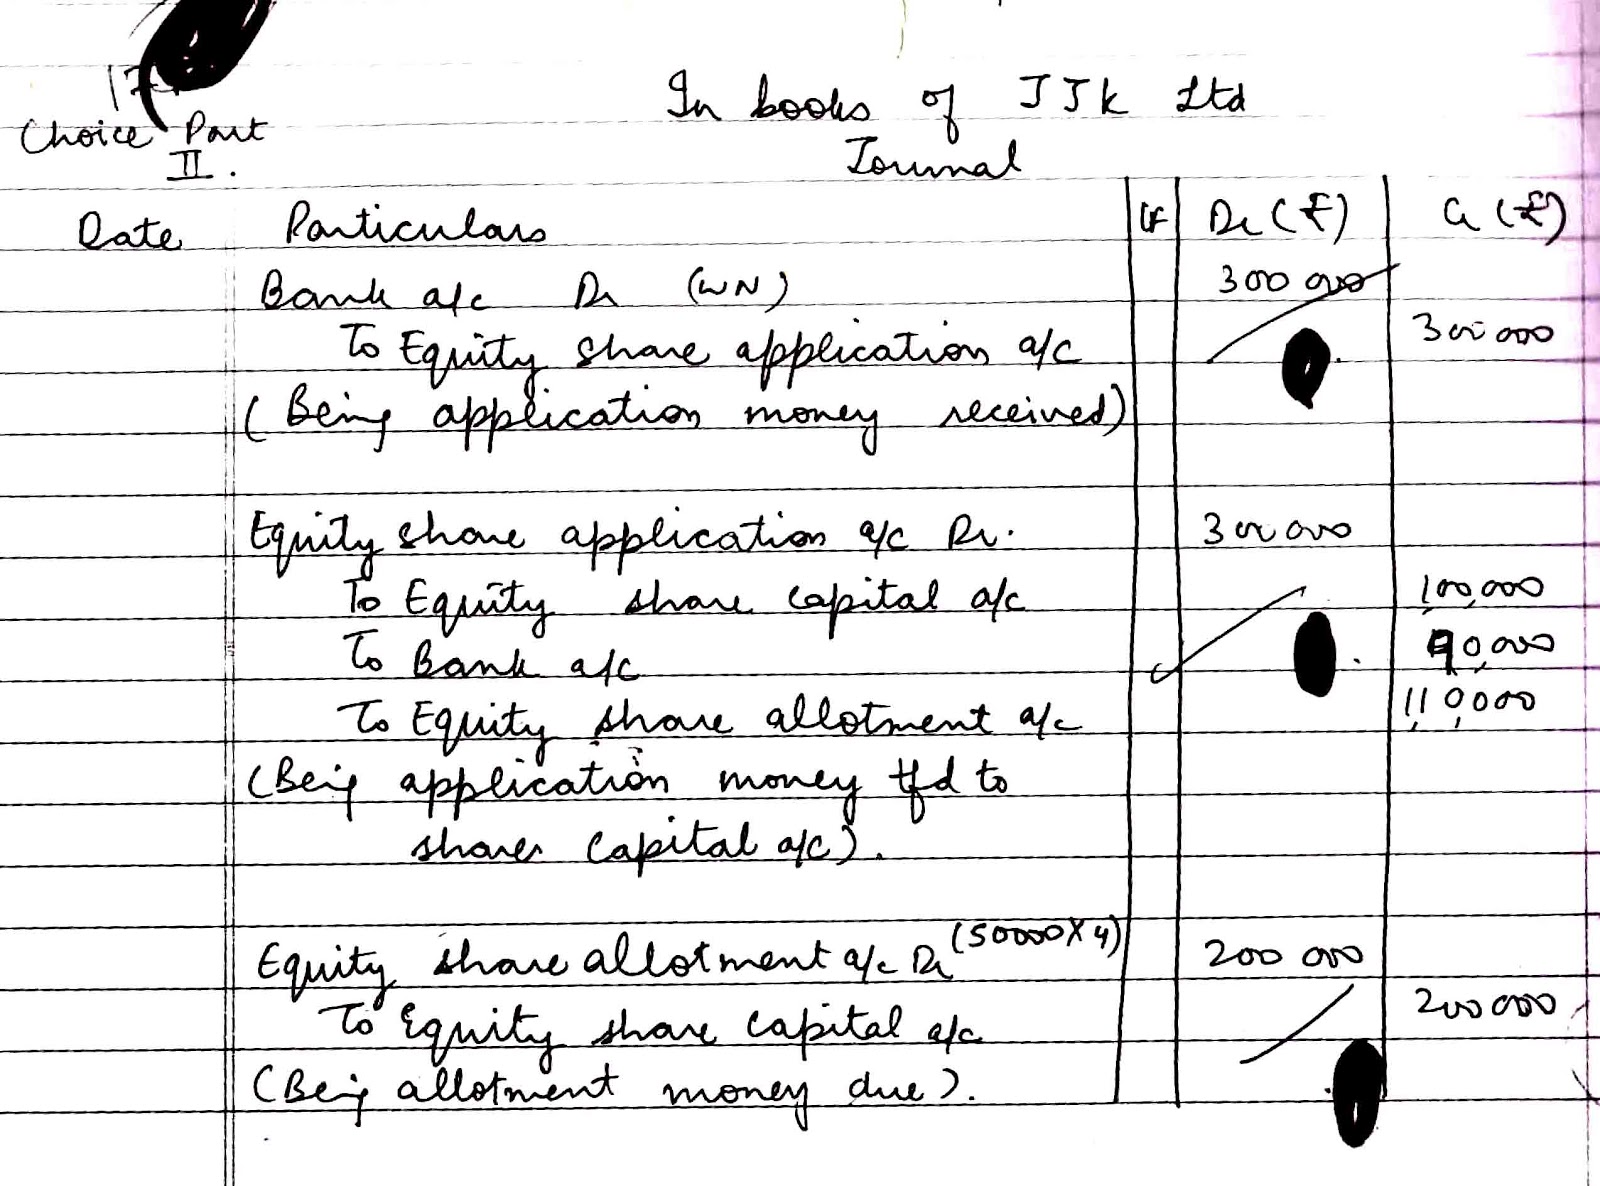 17
Choice Part
II.
In books of JJK Ltd
Journal
Date Particulars LF Dr (₹) Cr (₹)
Bank a/c Dr (WN) 300 000
To Equity share application a/c 300 000
(Being application money received)
Equity share application a/c Dr. 300 000
To Equity share capital a/c 100,000
To Bank a/c 90,000
To Equity share allotment a/c 110000
(Being application money tfd to
shares capital a/c).
Equity share allotment a/c Dr (50000X4) 200 000
To Equity share capital a/c 200 000
(Being allotment money due).